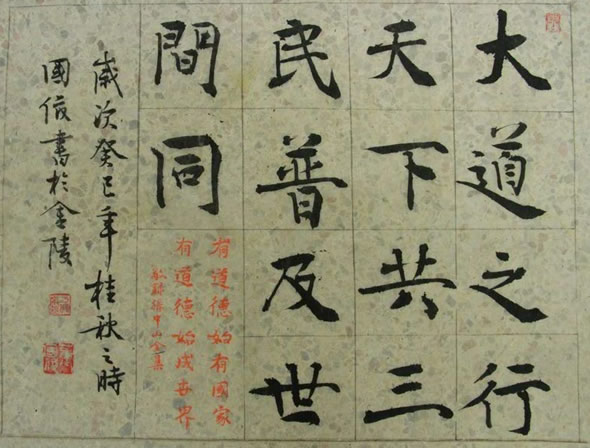 大道之行
天下共三
民普及世
間同
有道德始有國家
有道德始成世界
中山全集
歲次癸巳年桂秋之時
國書於金陵